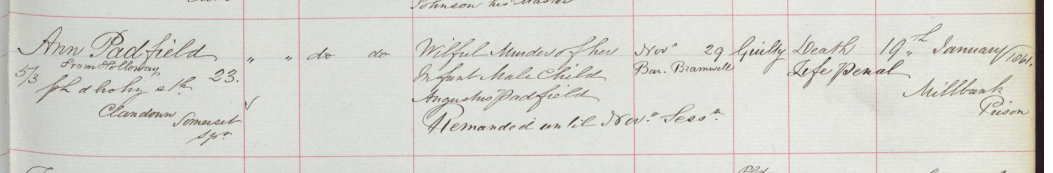 Johnson his Master
Ann Padfield 23. " " do do Wilful Murder of her Novr 29 Guilty Death 19th January/1861.
From Holloway Infant Male Child Bar. Bramwell Life Penal
5/3 Augustus Padfield Millbank
Clandown Somerset Remanded until Novr. Sessn. Prison
Spr
Old